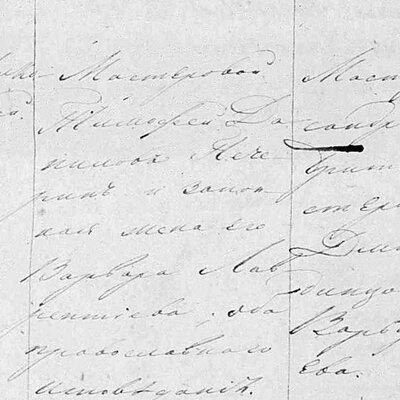 Мастеровой
Тимофей Да
ниловъ Пече
ринъ и закон
ная жена его
Варвара Лав
рентіева, оба
православнаго
исповѣданія.
Маст
Дми
Варв
ева.